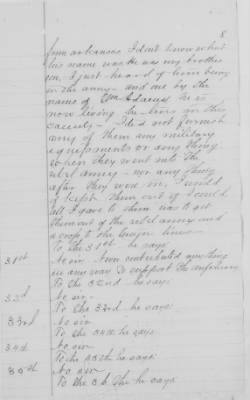 8
from arkansas I dont know what
his name was He was my brother
son, I just heard of him being
in the army - and one by the
name of Wm he is
now living he lives in this
county - I did not furnish
any of them any military
equipments or any thing
when they went into the
rebel army - nor any thing
after they were in, I would
of kept them out if I could
all I gave to them was to get
them out of the rebel army and
across to the Union lines -
To the 31st he says
31st No sir I never contributed anything
in any way to support the confederacy
To the 32nd he says
32d No sir -
To the 33rd he says
33rd No sir
To the 34th he says
34th No sir
To the 35th he says
35th No sir
To the 36 he says